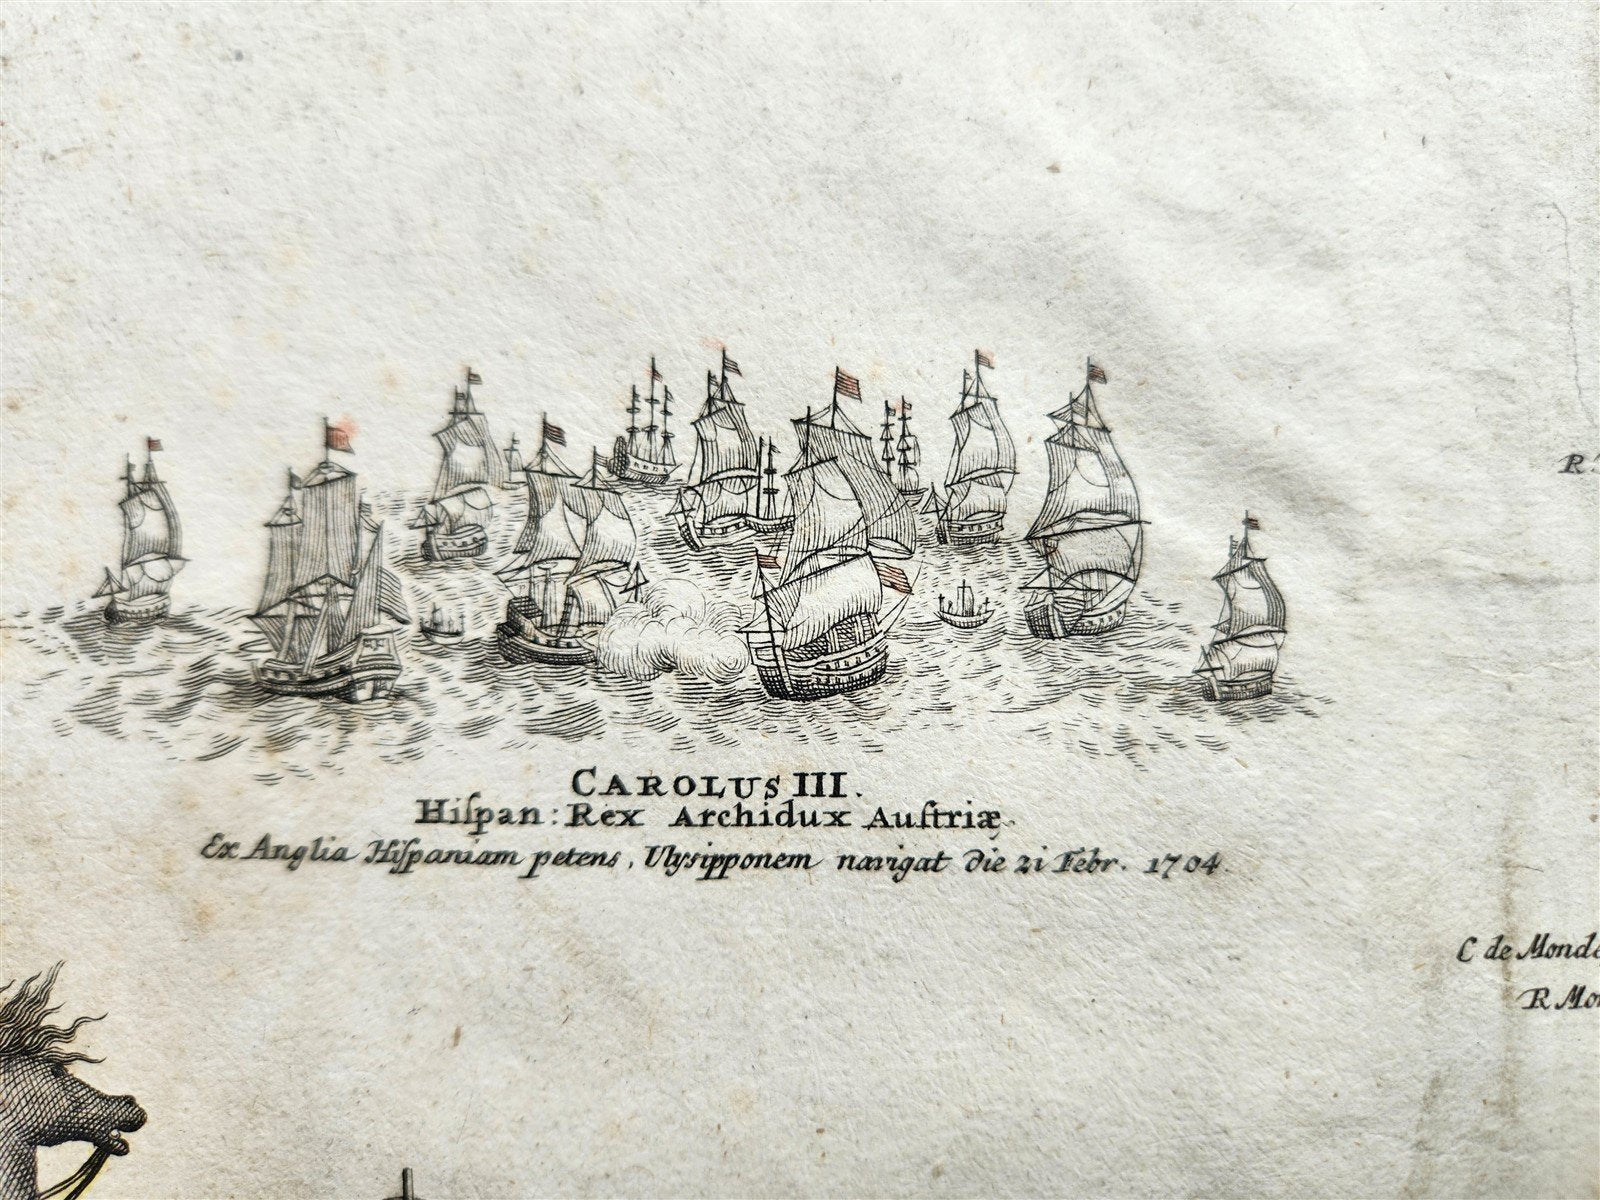 CAROLUS III.
Hiſpan: Rex Archidux Auſtriæ.
Ex Anglia Hiſpaniam petens, Ulysipponem navigat die 21 Febr. 1704.
R.
C de Monde
R Mon